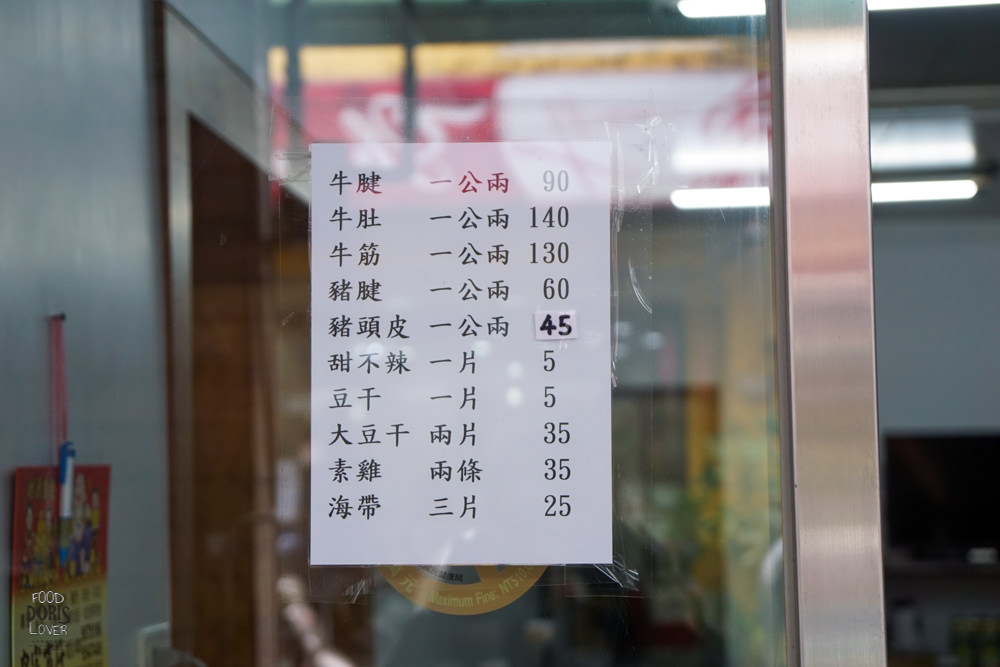 牛腱 一公兩 90
牛肚 一公兩 140
牛筋 一公兩 130
豬腱 一公兩 60
豬頭皮 一公兩 45
甜不辣 一片 5
豆干 一片 5
大豆干 兩片 35
素雞 兩條 35
海帶 三片 25
Maximum Fine: NT$
FOOD
DORIS
LOVER